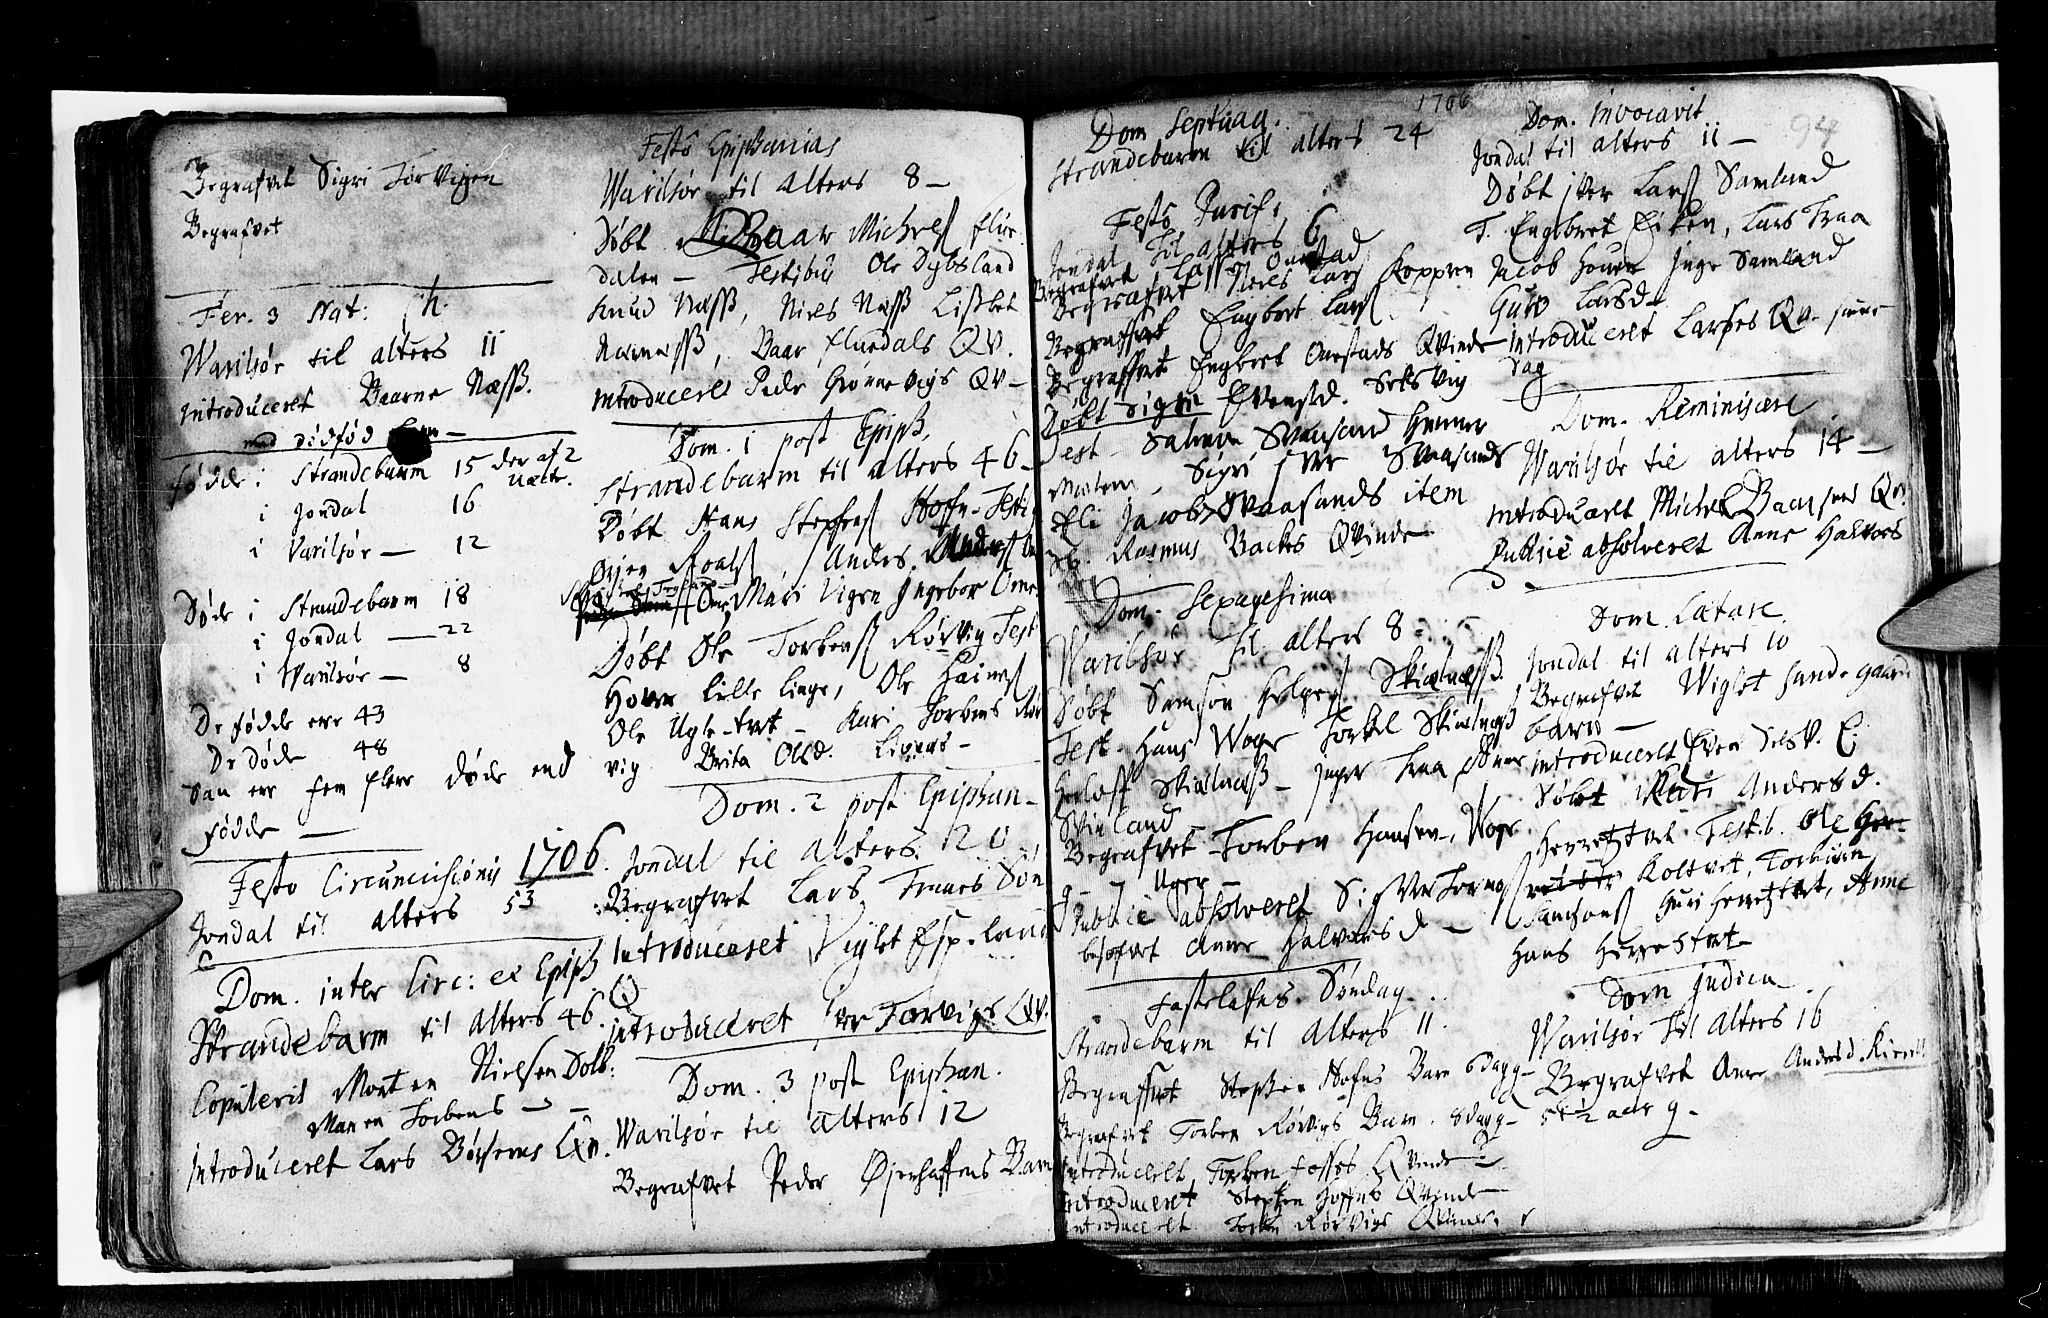 Begrafvet Sigri Torvigen
Begrafvet
Fer. 3 Nat:
Warilsør til alters 11
Introduceret Baarne Næss.
med dødfød
fødde i Strandebarm 15 der af 2
uægte.
i Jondal 16
i Varilsør — 12
Døde i Strandebarm 18
i Jondal — 22
i Warilsør — 8
De fødde ere 43
De døde 48
Saa ere fem flere døde end
fødde —
Festo Circumcisionis 1706
Jondal til alters 53
Dom. inter Circ: et Epiph
Strandebarm til alters 46.
Copulerit Morten Nielsen Dolb:
Maren Torbens —
Introduceret Lars Børsems Qv.
Festo Epiphanias
Warilsør til alters 8 —
Døbt Baar Michels flue
dalen — Testibus Ole Dybsland
Knud Næss, Niels Næss Lissbet
Næss, Baar fluedals Qv.
Introduceret Peder Grønnevigs Qv —
Dom. 1 post Epiph.
Strandebarm til alters 46 —
Døbt Hans Stephens Hofn — Testi
Roals, Anders
Mari Vigen Ingebor
Døbt Ole Torbens Rørvig Testi
lille Linge, Ole
Ole Ugletvet — Kari Torbens Rør
vig Brita Olsd.
Dom. 2 post Epiphan —
Jondal til alters 20
Begrafvet Lars Traaes Søn
Introduceret Viglet Espeland
Q
Introduceret Torvigs Qv.
Dom. 3 post Epiphan.
Warilsør til alters 12
Begrafvet Peder Øjerhaffens Barn
1706
94
Dom Septuag.
Strandebarm til alters 24
Festo Purif.
Jondal til alters 6
Begrafvet Onestad
Begrafvet Niels Lars Koppen
Begraffvet Engbret Lars
Begraffvet Engbret Onestads Qvinde
Døbt Sigri Evensd. Selsvig
Test — Svaasand
Sigri Svaasands
Eli Jacobs Svaasands item
Rasmus Backes Qvinde
Dom. Sexagesima
Warilsør til alters 8
Døbt Samson Helges Skielnæss
Test. Hans Woge Torkel Skielnæss
Herlof Skielnæss — Inger Traa
Skieland
Begrafvet Torben Hansen, Woge
g — 7 Uger —
Publice absolveret
besofvet Anne Halvorsd —
Fastelafns Søndag
Strandebarm til alters 11.
Begraffvet Stephen Hofns Barn 6 dage —
Begrafvet Torben Rørvigs Barn. 8 dage —
Introduceret Torben Fosses Qvinde
Introduceret Stephen Hoffns Qvinde
Introduceret Torben Rørvigs Qvinde.
Dom. Invocavit
Jondal til alters 11 —
Døbt Iver Lars Samland
T. Engebret Eiken, Lars Traa
Jacob Inge Samland
Guro Larsd —
Introduceret Larses Qv. samme
dag
Dom. Reminiscere
Warilsør til alters 14 —
Introduceret Michel Qv.
Publice absolveret Anne Halvors
D —
Dom. Lætare.
Jondal til alters 10
Begrafvet Wiglet Sandegaards
barn —
Introduceret Even Selsv. E.
Døbt Kari Andersd.
Herretztvet Testib. Ole
Koltvet, Torbiørn
Samsons Guri Herretztvet, Anne
Hans Herrestvet
Dom Judica
Warilsør til alters 16
Begrafvet Ane Andersd.
5½ aar g —